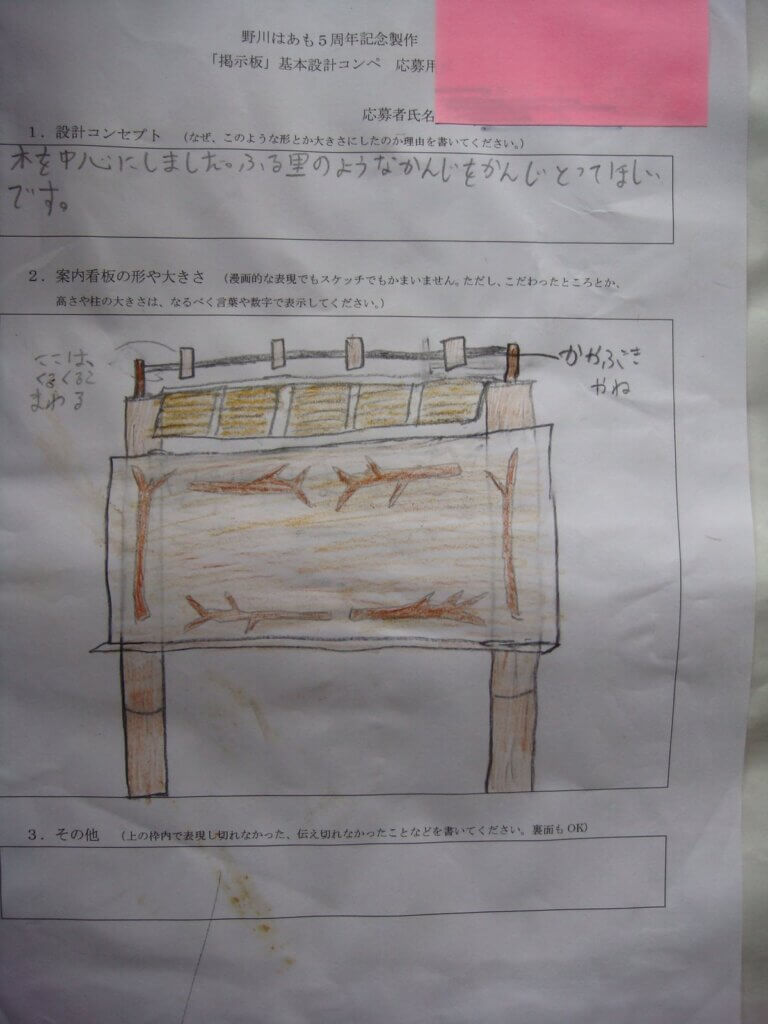 野川はあも5周年記念製作
「掲示板」基本設計コンペ 応募用
応募者氏名
1．設計コンセプト （なぜ、このような形とか大きさにしたのか理由を書いてください。）
木を中心にしました。ふる里のようなかんじをかんじとってほしい
です。
2．案内看板の形や大きさ （漫画的な表現でもスケッチでもかまいません。ただし、こだわったところとか、
高さや柱の大きさは、なるべく言葉や数字で表示してください。）
ここは、
くるくると
まわる
かやぶき
やね
3．その他 （上の枠内で表現し切れなかった、伝え切れなかったことなどを書いてください。裏面もOK）